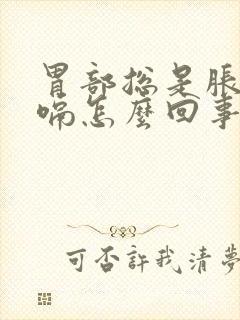 胃部總是脹
嗝怎麼回事
可否許我清夢